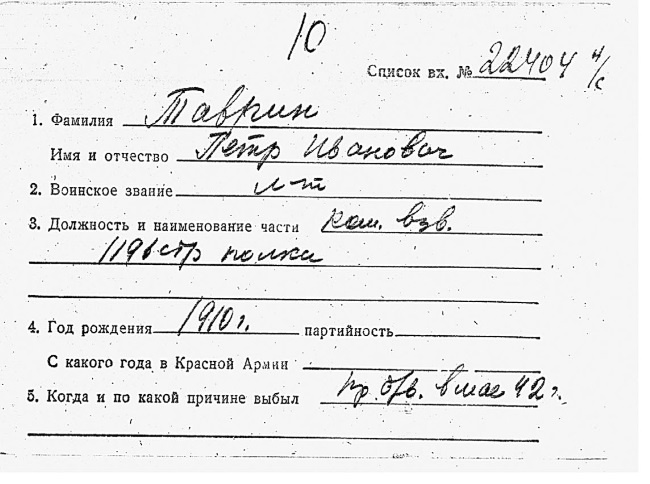 10
Список вх. № 22404 н/с
1. Фамилия Таврин
Имя и отчество Петр Иванович
2. Воинское звание л-т
3. Должность и наименование части ком. взв.
1196 стр полка
4. Год рождения 1910 г. партийность
С какого года в Красной Армии
5. Когда и по какой причине выбыл пр. б/в. в мае 42 г.